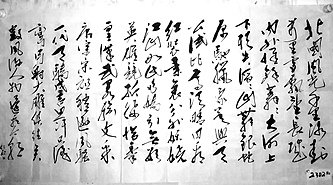 北国风光千里冰封
万里雪飘望长城
内外惟余莽莽大河上
下顿失滔滔山舞银蛇
原驰蜡象欲与天
公试比高须晴日看
红装素裹分外妖娆
江山如此多娇引无数
英雄竞折腰惜秦
皇汉武略输文采
唐宗宋祖稍逊风骚
一代天骄成吉思汗
弯弓射大雕俱往矣
数风流人物还看今朝